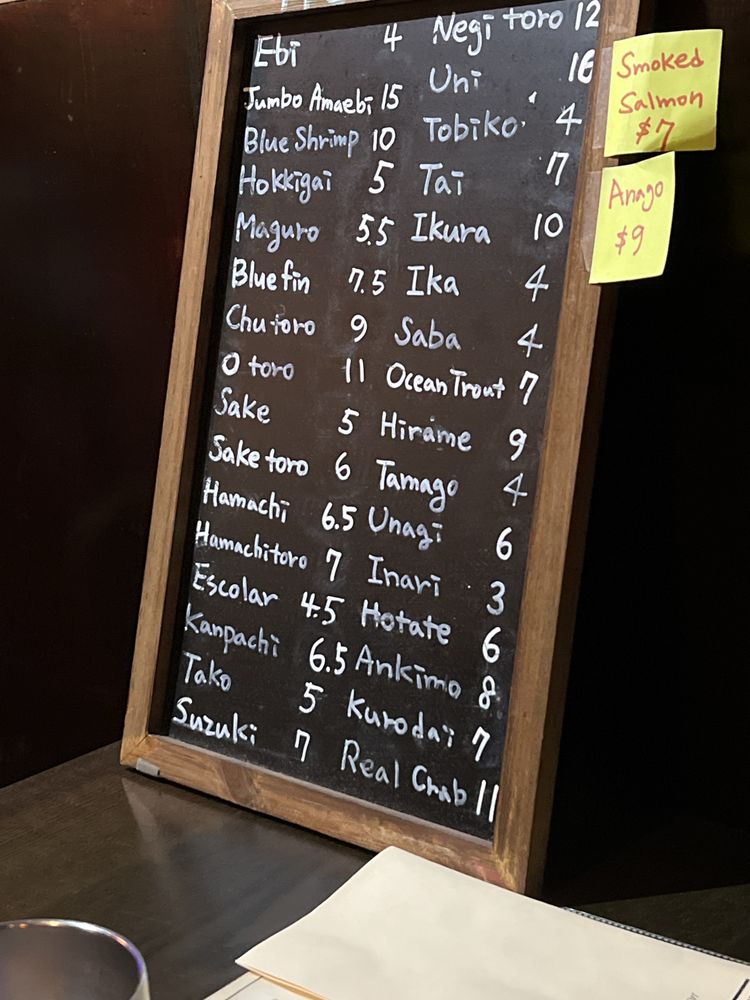 Ebi 4
Jumbo Amaebi 15
Blue Shrimp 10
Hokkigai 5
Maguro 5.5
Bluefin 7.5
Chutoro 9
O toro 11
Sake 5
Sake toro 6
Hamachi 6.5
Hamachitoro 7
Escolar 4.5
Kanpachi 6.5
Tako 5
Suzuki 7
Negi toro 12
Uni 16
Tobiko 4
Tai 7
Ikura 10
Ika 4
Saba 4
Ocean Trout 7
Hirame 9
Tamago 4
Unagi 6
Inari 3
Hotate 6
Ankimo 8
Kurodai 7
Real Crab 11
Smoked
Salmon
$7
Anago
$9